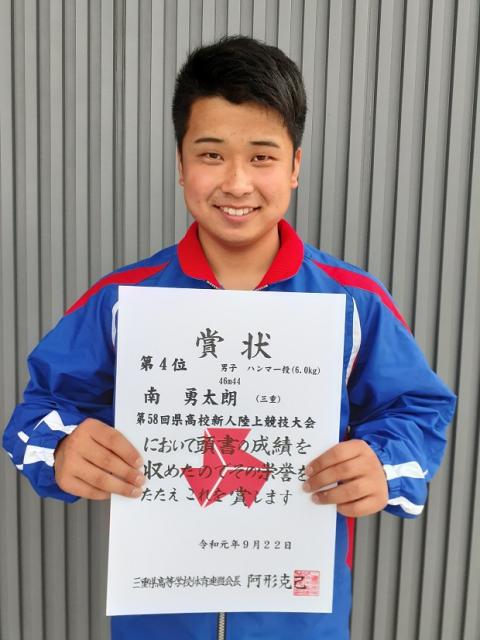 賞状
第4位 男子 ハンマー投(6.0kg)
46m44
南 勇太朗 (三重)
第58回県高校新人陸上競技大会
において頭書の成績を
収めたのでその栄誉を
たたえこれを賞します
令和元年9月22日
三重県高等学校体育連盟会長 阿形克己